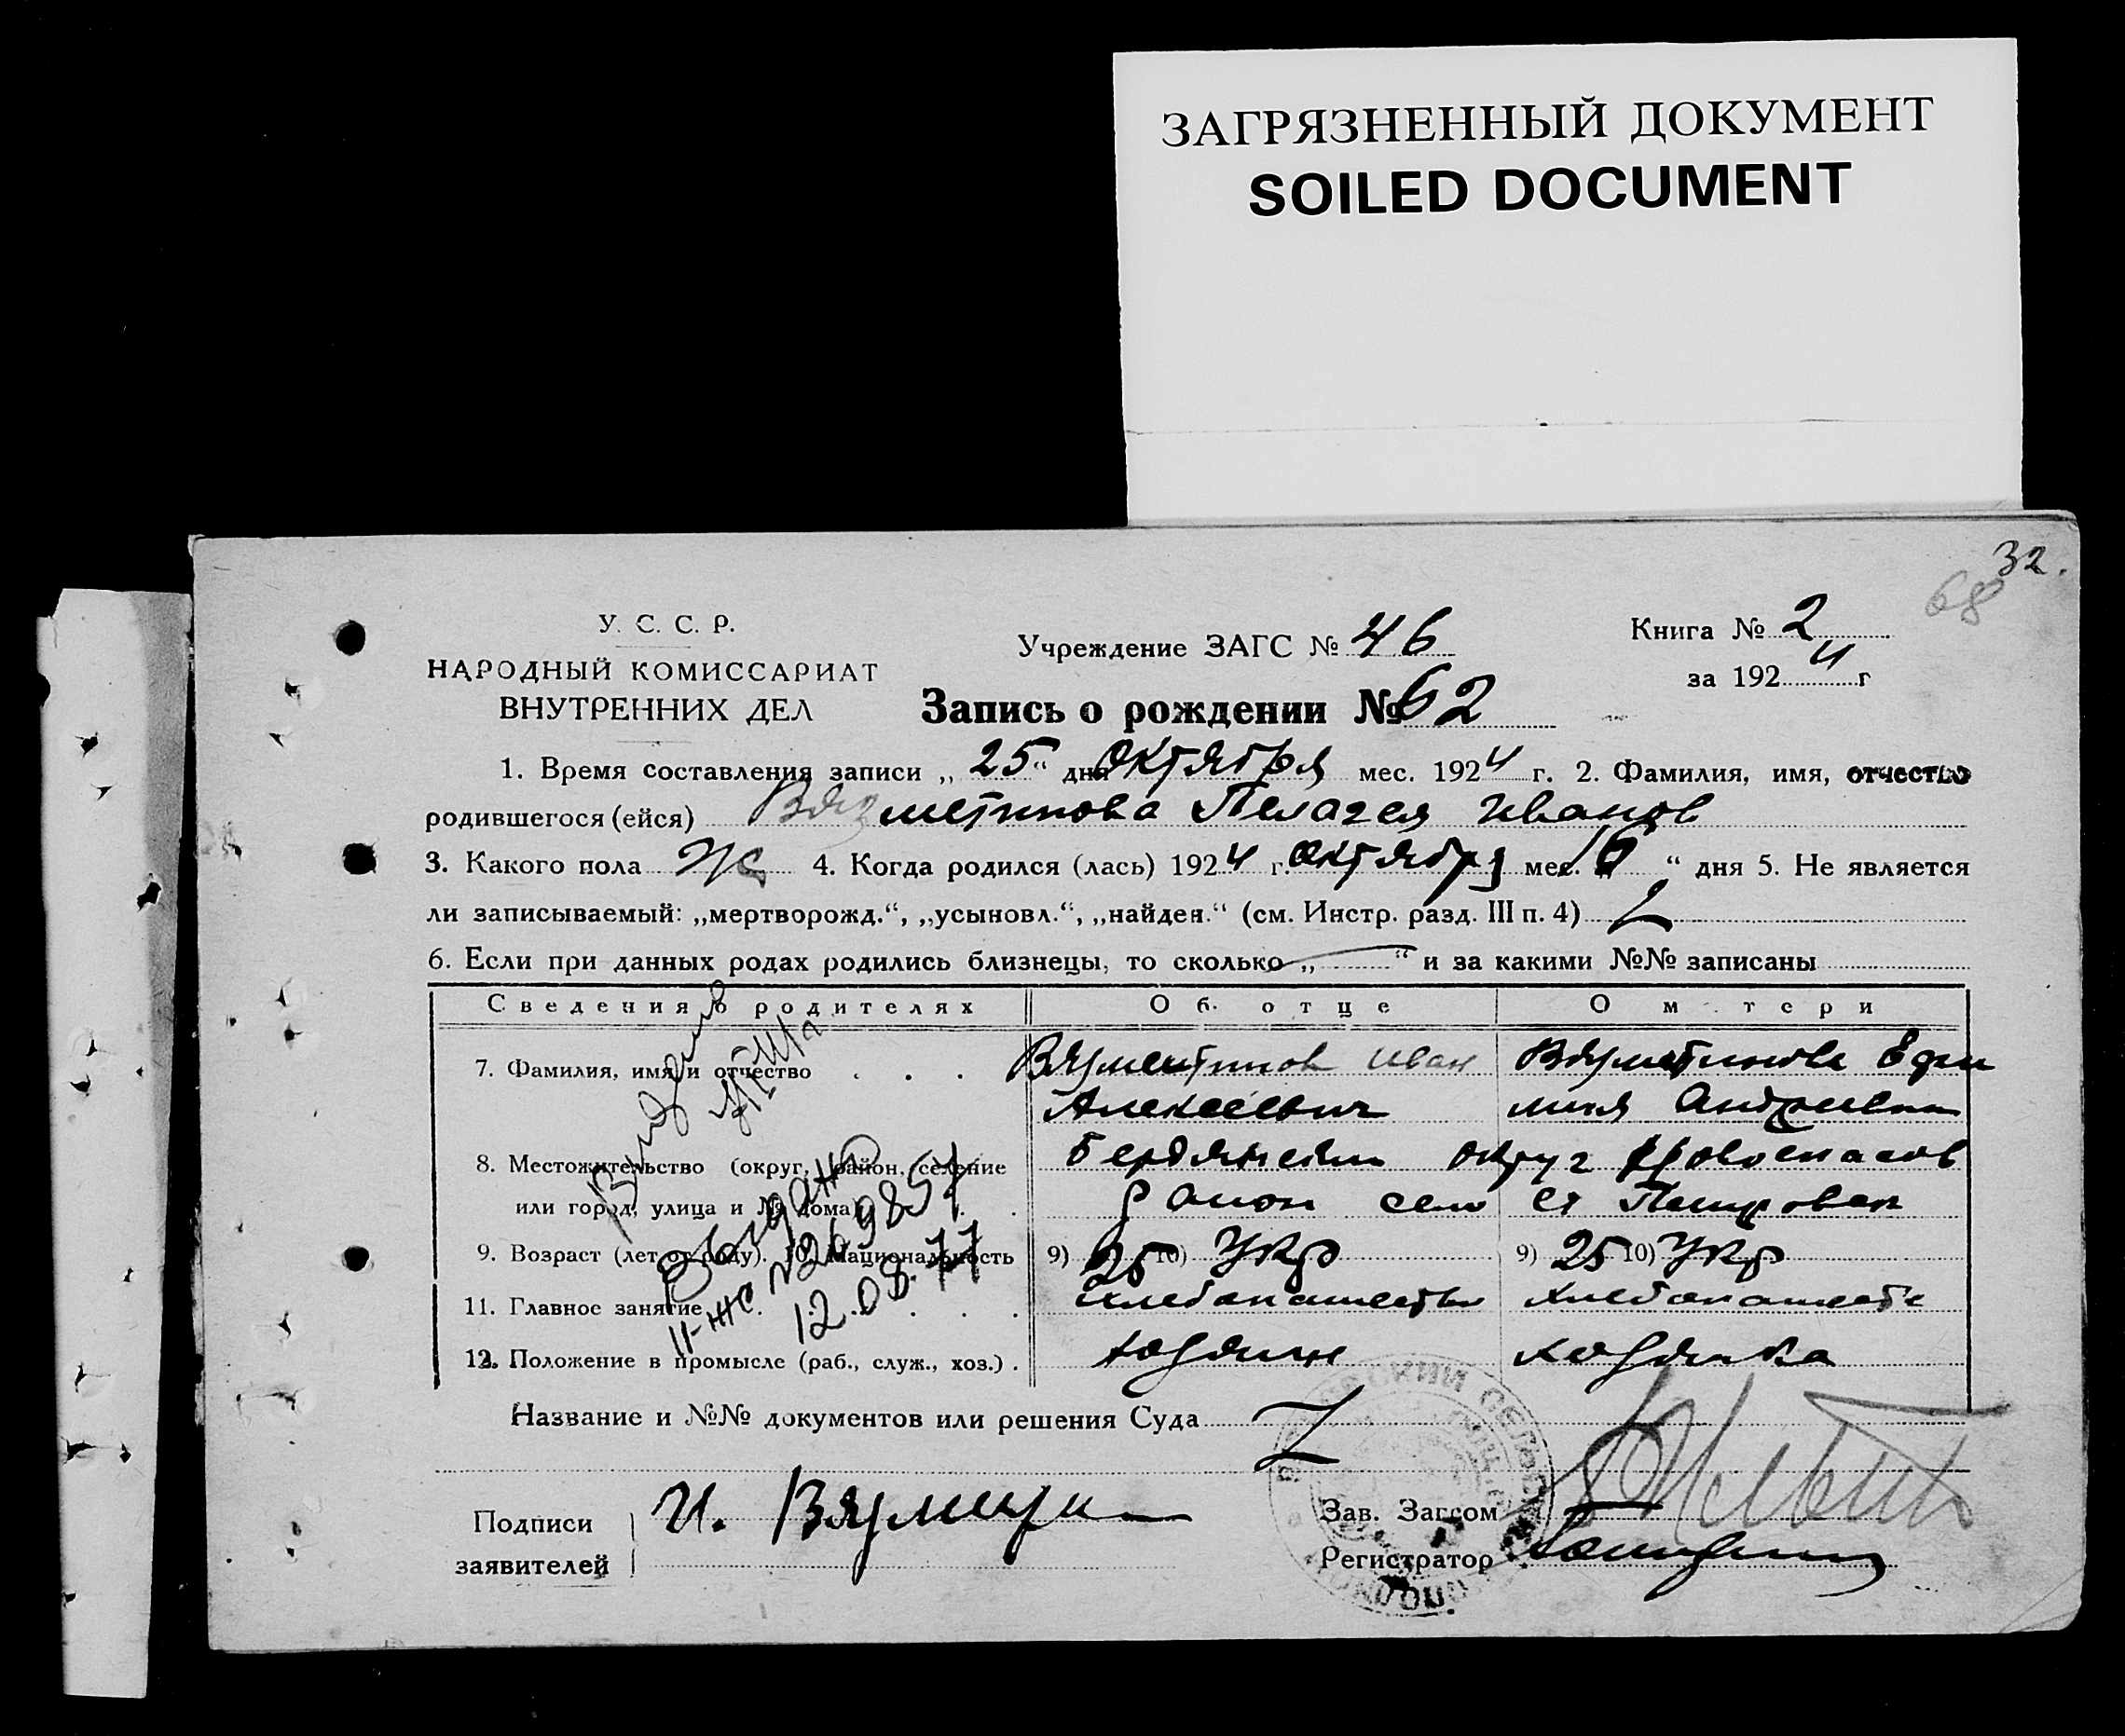 ЗАГРЯЗНЕННЫЙ ДОКУМЕНТ
SOILED DOCUMENT
32.
68
У. С. С. Р.
НАРОДНЫЙ КОМИССАРИАТ
ВНУТРЕННИХ ДЕЛ
Учреждение ЗАГС № 46
Книга № 2
за 1924 г
Запись о рождении № 62
1. Время составления записи „ 25 “ дня Октября мес. 1924 г. 2. Фамилия, имя, отчество
родившегося (ейся) Вязметинова Пелагея Иванов
3. Какого пола Ж 4. Когда родился (лась) 1924 г. Октября мес. “ дня 5. Не является
ли записываемый: „мертворожд.“, „усыновл.“, „найден.“ (см. Инстр. разд. III п. 4)
6. Если при данных родах родились близнецы, то сколько „ “ и за какими №№ записаны
Сведения о родителях Об отце О матери
7. Фамилия, имя и отчество Вязметинов Иван Вязметинова Ефи
Алексеевич мия Андреевна
8. Местожительство (округ, район, селение Бердянский округ
или город, улица и № дома) район село Петровка
9. Возраст (лет от роду). 10. Национальность 9) 25 10) Укр 9) 25 10) Укр
11. Главное занятие хлебопашество хлебопашеств
12. Положение в промысле (раб., служ., хоз.) хозяин хозяйка
Выдано
II-ЖС № 269857
12.08.77
Название и №№ документов или решения Суда
Подписи
заявителей
И.
Зав. Загсом
Регистратор